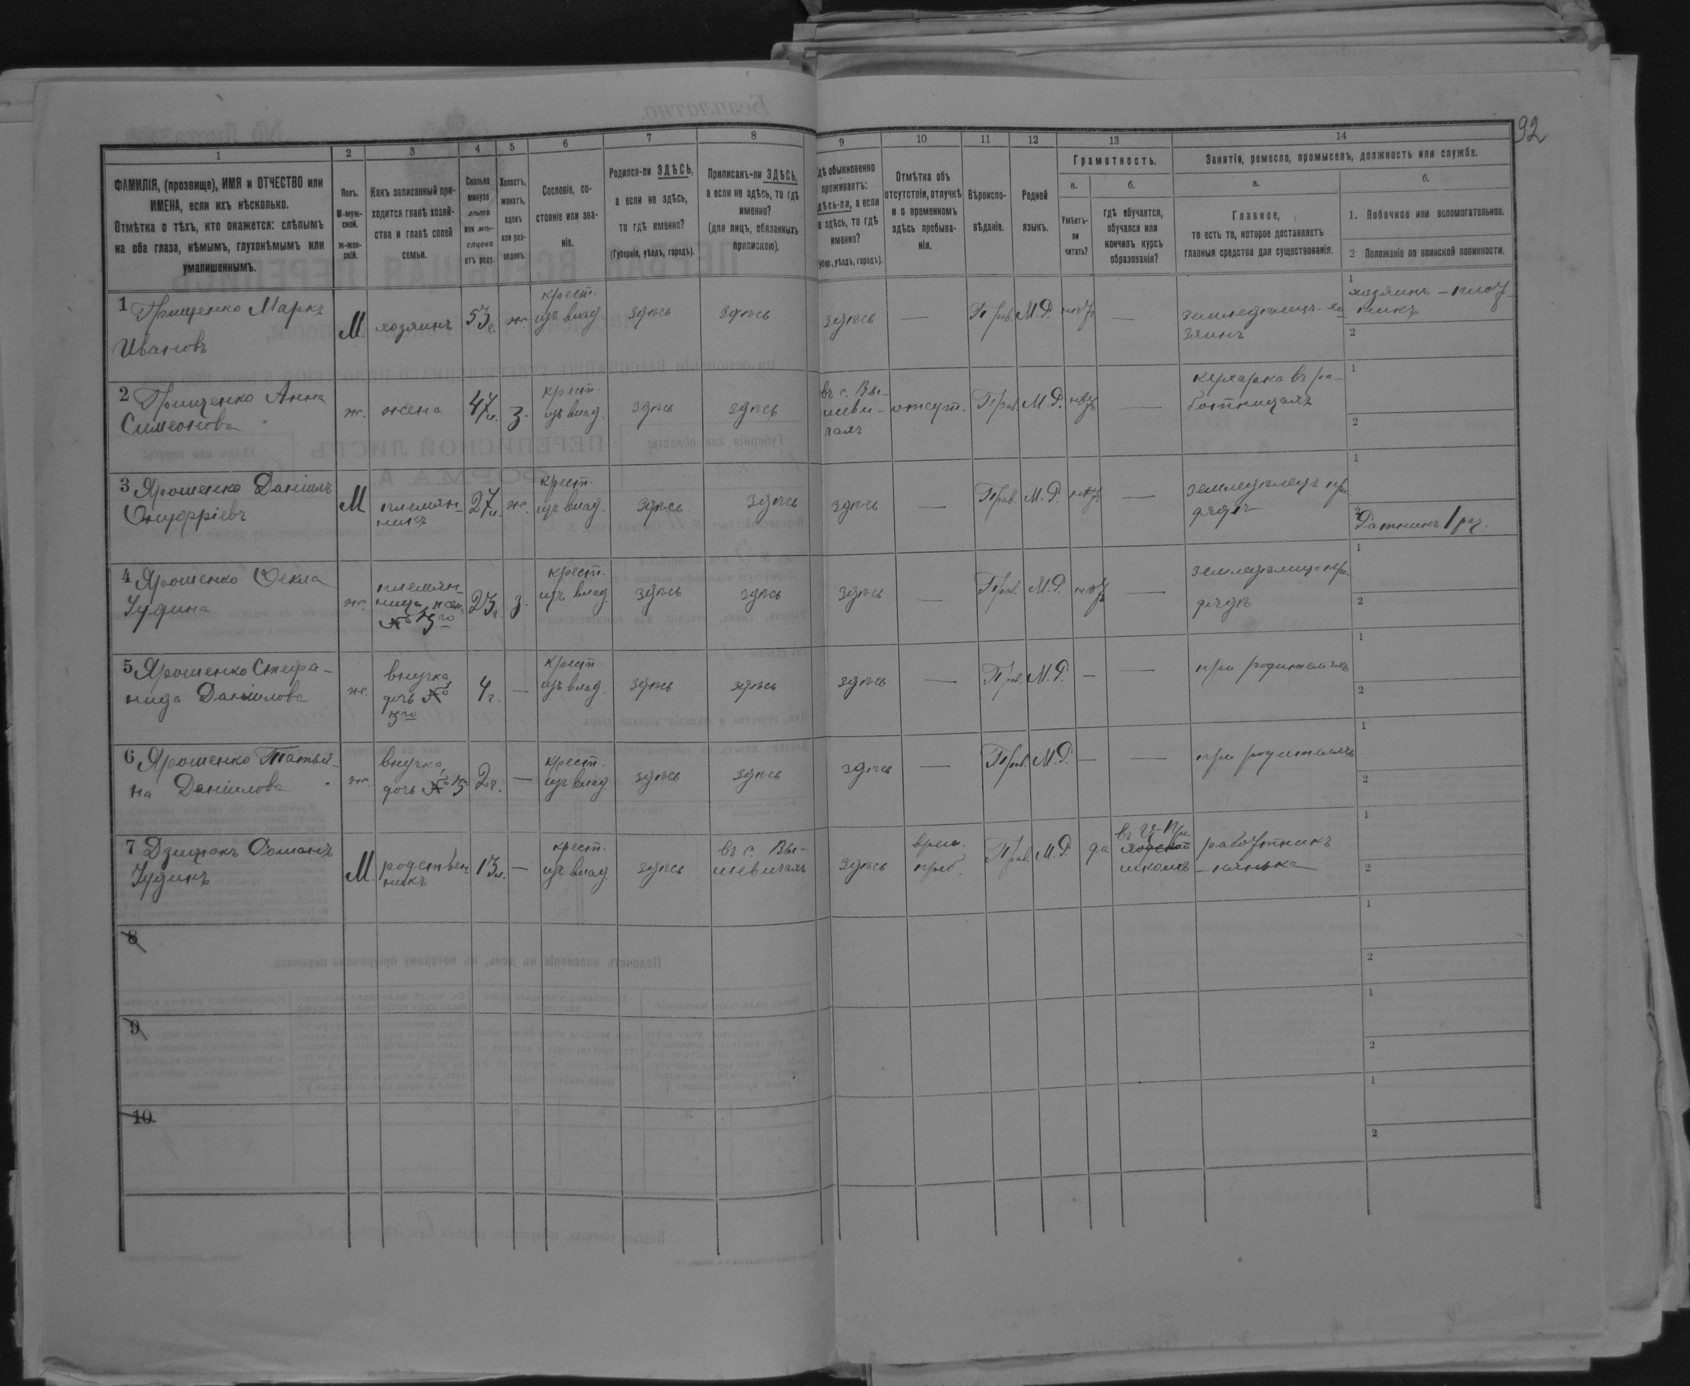 92
1 2 3 4 5 6 7 8 9 10 11 12 13 14
ФАМИЛІЯ, (прозвище), ИМЯ и ОТЧЕСТВО или
ИМЕНА, если ихъ нѣсколько.
Отмѣтка о тѣхъ, кто окажется: слѣпымъ
на оба глаза, нѣмымъ, глухонѣмымъ или
умалишеннымъ.
Полъ.
М-муж-
ской.
ж-жен-
скій.
Какъ записанный при-
ходится главѣ хозяй-
ства и главѣ своей
семьи.
Сколько
минуло
лѣтъ
или мѣ-
сяцевъ
отъ роду.
Холостъ,
женатъ,
вдовъ
или раз-
веденъ.
Сословіе, со-
стояніе или зва-
ніе.
Родился-ли ЗДѢСЬ,
а если не здѣсь,
то гдѣ именно?
(Губернія, уѣздъ, городъ).
Приписанъ-ли ЗДѢСЬ,
а если не здѣсь, то гдѣ
именно?
(для лицъ, обязанныхъ
припискою).
гдѣ обыкновенно
проживаетъ:
здѣсь-ли, а если
не здѣсь, то гдѣ
именно?
губер., уѣздъ, городъ).
Отмѣтка объ
отсутствіи, отлучкѣ
и о временномъ
здѣсь пребыва-
ніи.
Вѣроиспо-
вѣданіе.
Родной
языкъ.
Грамотность.
а.
Умѣетъ-
ли
читать?
б.
гдѣ обучается,
обучался или
кончилъ курсъ
образованія?
Занятіе, ремесло, промыселъ, должность или служба.
а.
Главное,
то есть то, которое доставляетъ
главныя средства для существованія.
б.
1. Побочное или вспомогательное.
2 Положеніе по воинской повинности.
1 Грищенко Маркъ
Ивановъ
М. хозяинъ 53 г. ж. крест.
изъ влад. здѣсь здѣсь здѣсь — Прав. М.Р. нѣтъ — земледѣлецъ-хо
зяинъ
1 хозяинъ - плот
никъ
2
2 Грищенко Анна
Симеонова
ж. жена 47 г. з. крест.
изъ влад. здѣсь здѣсь въ с. Вы-
шеви-
чахъ отсут. Прав. М.Р. нѣтъ — кухарка въ ра-
ботницахъ
1
2
3 Ярошенко Даніилъ
Онуфріевъ
М племян-
никъ 27 г. ж. крест.
изъ влад. здѣсь здѣсь здѣсь — Прав. М.Р. нѣтъ — земледѣлецъ при
дядѣ
1
2 Ратникъ 1 раз.
4 Ярошенко Ѳекла
Іудина
ж. племян-
ница, жена
№ 3го 23 г. з. крест.
изъ влад. здѣсь здѣсь здѣсь — Прав. М.Р. нѣтъ — земледѣлица при
дядѣ
1
2
5 Ярошенко Стефа-
нида Даніилова
ж. внучка,
дочь №
3го 4 г. — крест.
изъ влад. здѣсь здѣсь здѣсь — Прав. М.Р. — — при родителяхъ
1
2
6 Ярошенко Татья-
на Даніилова
ж. внучка,
дочь № 3 2 г. — крест.
изъ влад. здѣсь здѣсь здѣсь — Прав. М.Р. — — при родителяхъ
1
2
7 Романъ
Іудинъ
М. родствен
никъ 13 л. — крест.
изъ влад. здѣсь въ с. Вы-
шевичахъ здѣсь врем.
преб. Прав. М.Р. да въ
школѣ работникъ
- нянька
1
2
8
1
2
9
1
2
10
1
2